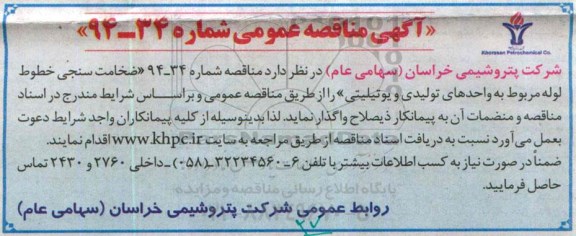 «آگهی مناقصه عمومی شماره ۳۴ـ۹۴»
Khorasan Petrochemical Co.
شرکت پتروشیمی خراسان (سهامی عام) در نظر دارد مناقصه شماره ۳۴ـ۹۴ «ضخامت سنجی خطوط
لوله مربوط به واحدهای تولیدی و یوتیلیتی» را از طریق مناقصه عمومی و براساس شرایط مندرج در اسناد
مناقصه و منضمات آن به پیمانکار ذیصلاح واگذار نماید. لذا بدینوسیله از کلیه پیمانکاران واجد شرایط دعوت
بعمل می آورد نسبت به دریافت اسناد مناقصه از طریق مراجعه به سایت www.khpc.ir اقدام نمایند.
ضمناً در صورت نیاز به کسب اطلاعات بیشتر با تلفن ۶ـ۳۲۲۳۴۵۶۰ـ(۰۵۸)ـ داخلی ۲۷۶۰ و ۲۴۳۰ تماس
حاصل فرمایید.
پایگاه اطلاع رسانی مناقصه و مزایده
روابط عمومی شرکت پتروشیمی خراسان (سهامی عام)
۲۷